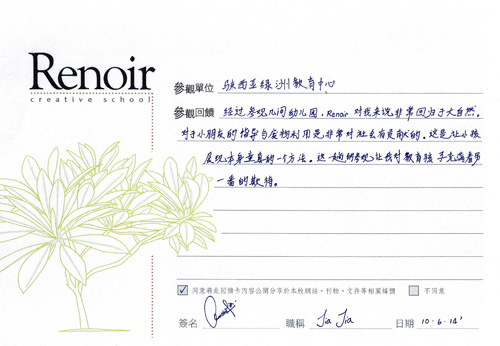 Renoir
creative school
參觀單位 西亚绿洲教育中心
參觀回饋 经过参观几间幼儿园,Renoir 对我来说非常回归于大自然。
对于小朋友的指导与废物利用是非常对社会有贡献的。这是让小孩
展现本身童真的一个方法。这一趟的参观让我对教育孩子充满着另
一番的期待。
同意將此回饋卡內容公開分享於本校網站、刊物、文件等相關媒體 不同意
簽名 職稱 Jia Jia 日期 10.6.14'